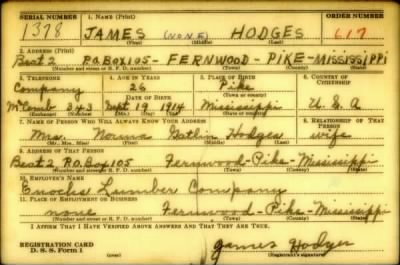 SERIAL NUMBER 1. NAME (Print) ORDER NUMBER
1378 JAMES (NONE) HODGES 617
(First) (Middle) (Last)
2. ADDRESS (Print)
Beat 2 P.O. BOX 105 - FERNWOOD - PIKE - MISSISSIPPI
(Number and street or R. F. D. number) (Town) (County) (State)
3. TELEPHONE 4. AGE IN YEARS 5. PLACE OF BIRTH 6. COUNTRY OF CITIZENSHIP
Company 26 Pike
DATE OF BIRTH (Town or county)
McComb 343 Sept. 19 1914 Mississippi U.S.A
(Exchange) (Number) (Mo.) (Day) (Yr.) (State or country)
7. NAME OF PERSON WHO WILL ALWAYS KNOW YOUR ADDRESS 8. RELATIONSHIP OF THAT PERSON
Mrs. Norma Gatlin Hodges wife
(Mr., Mrs., Miss) (First) (Middle) (Last)
9. ADDRESS OF THAT PERSON
Beat 2 P.O. Box 105 Fernwood - Pike - Mississippi
(Number and street or R. F. D. number) (Town) (County) (State)
10. EMPLOYER'S NAME
Enochs Lumber Company
11. PLACE OF EMPLOYMENT OR BUSINESS
none Fernwood - Pike - Mississippi
(Number and street or R. F. D. number) (Town) (County) (State)
I AFFIRM THAT I HAVE VERIFIED ABOVE ANSWERS AND THAT THEY ARE TRUE.
REGISTRATION CARD
D. S. S. Form 1
James Hodges